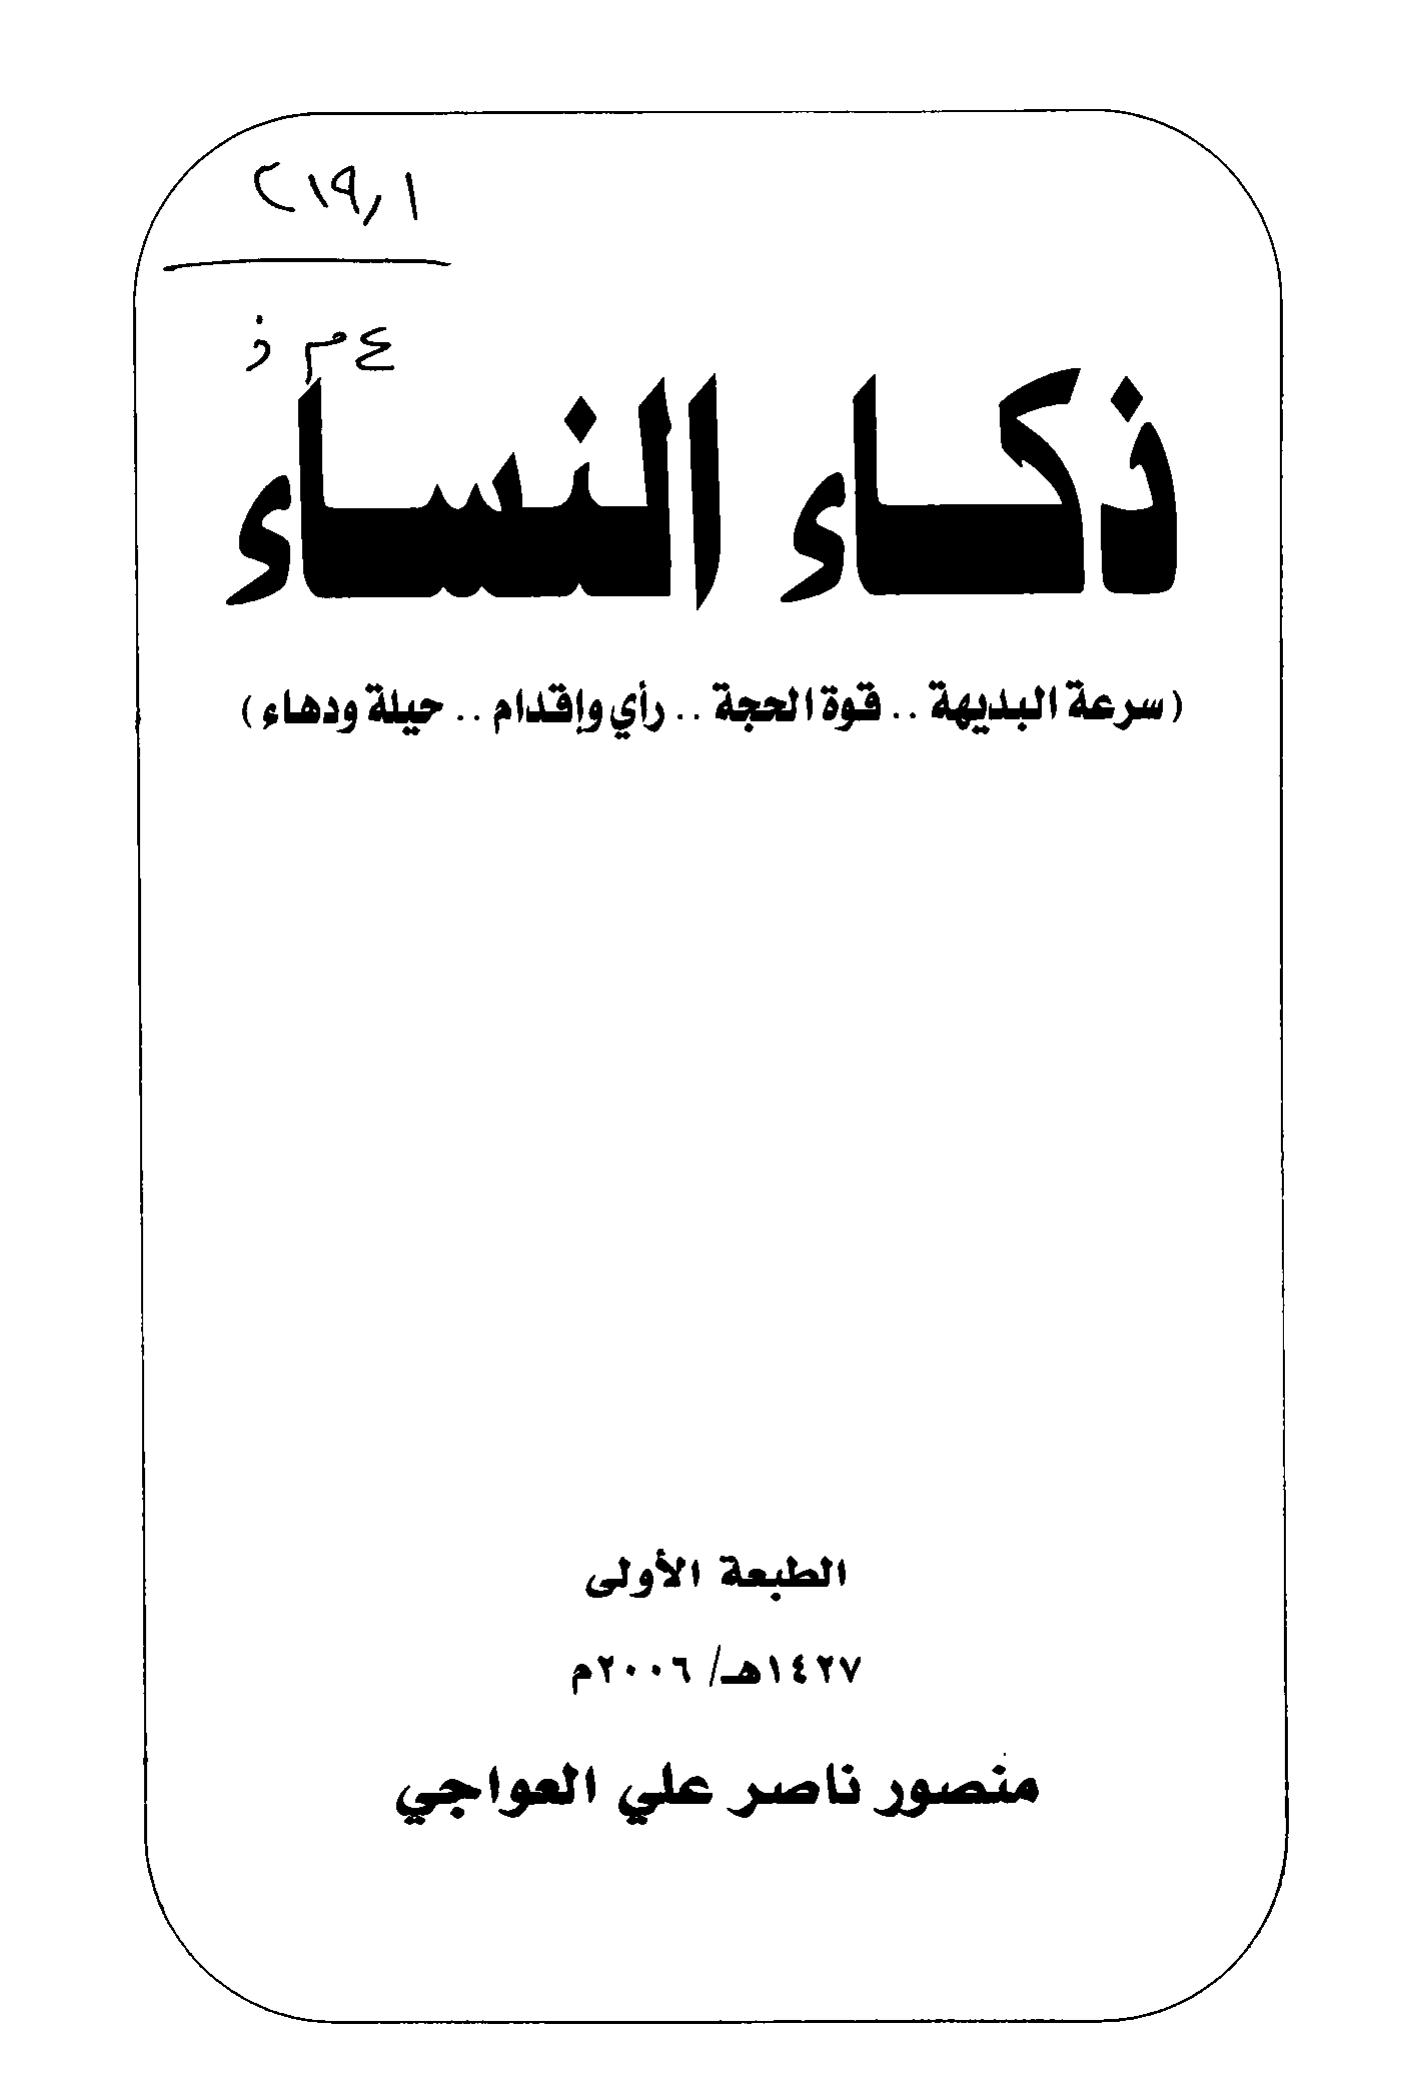 ٢١٩,١
ذ م ع
ذكاء النساء
(سرعة البديهة .. قوة الحجة .. رأي وإقدام .. حيلة ودهاء)
الطبعة الأولى
١٤٢٧هـ/ ٢٠٠٦م
منصور ناصر علي العواجي